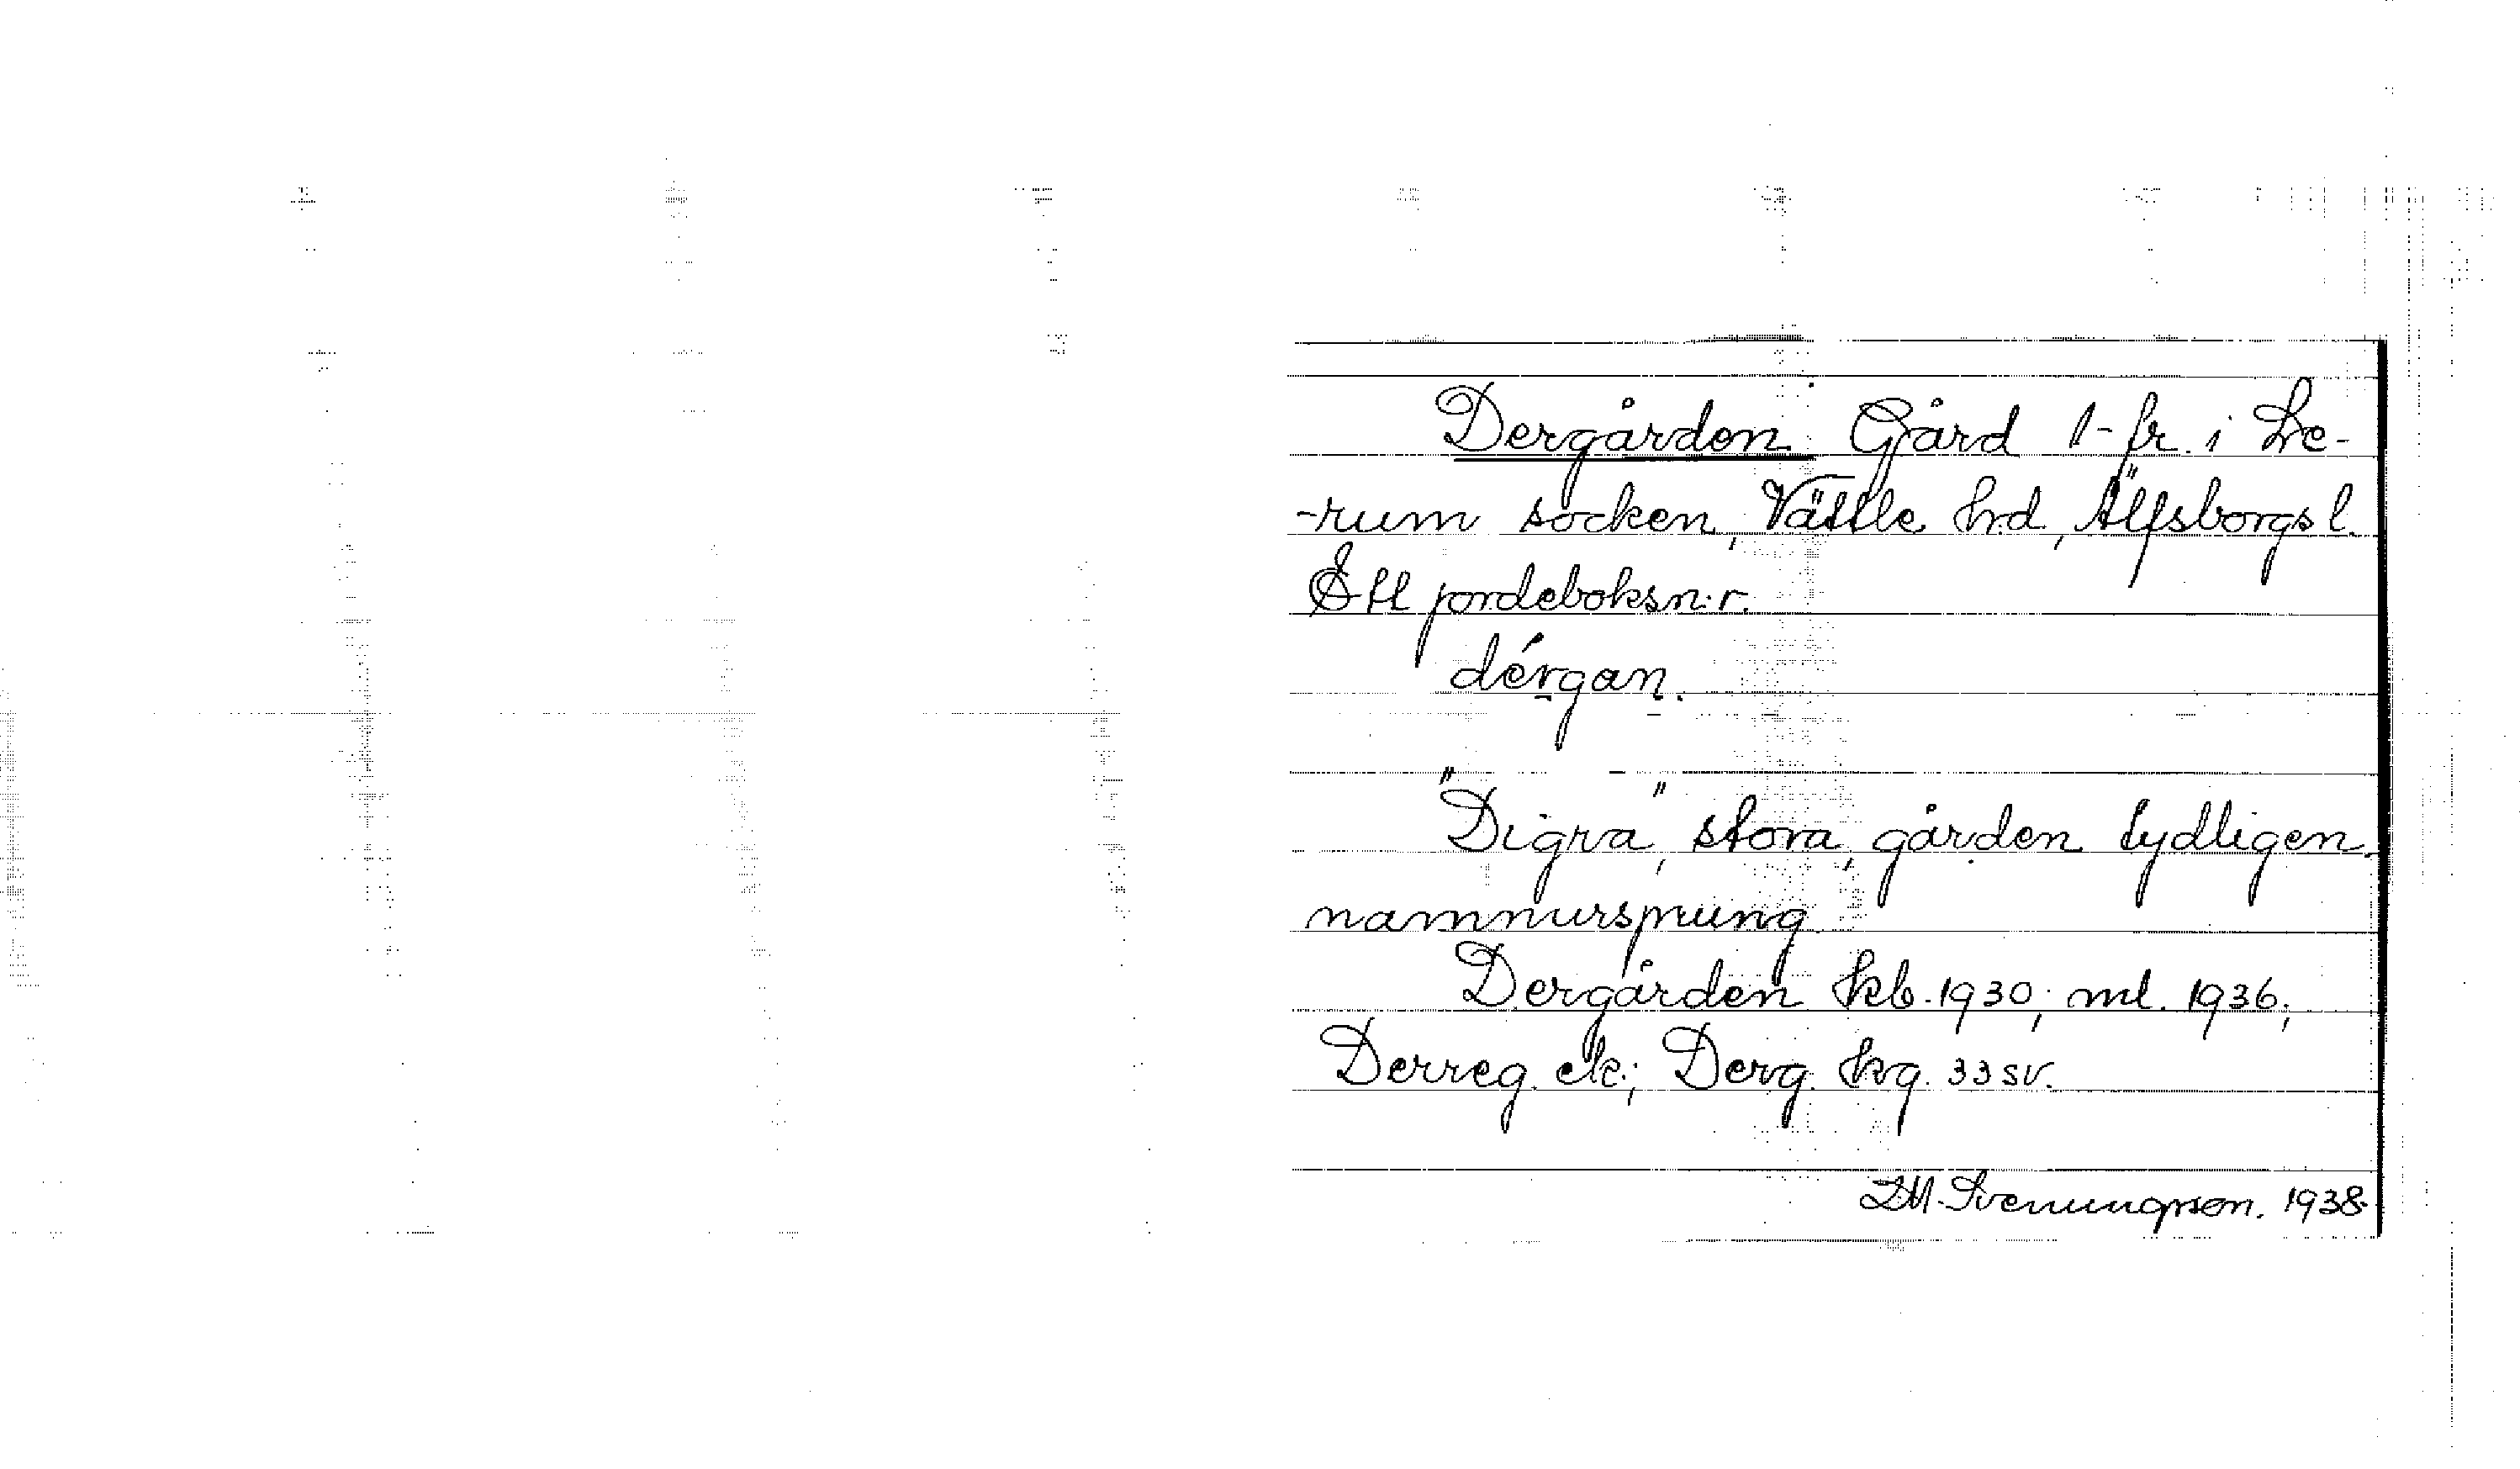 Dergården. Gård 1-fr. i Le-
-rum socken, Vättle hrd, Älfsborgs l.
Ett jordeboksn:r.
dérgan.
"Digra", stora, gården tydligen
namnursprung
Dergården kb. 1930; ml. 1936;
Derreg. ek.; Derg. hvg. 33 sv.
Svenungsson. 1938.